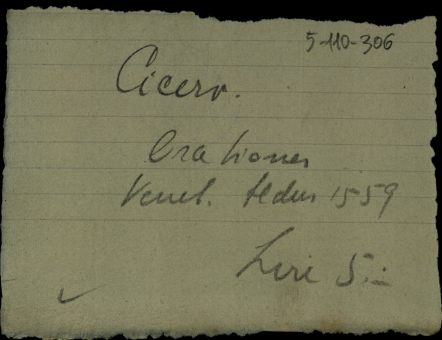 5-110-306
Cicero.
Orationes
Venet. Aldus 1559
Lire 5.=